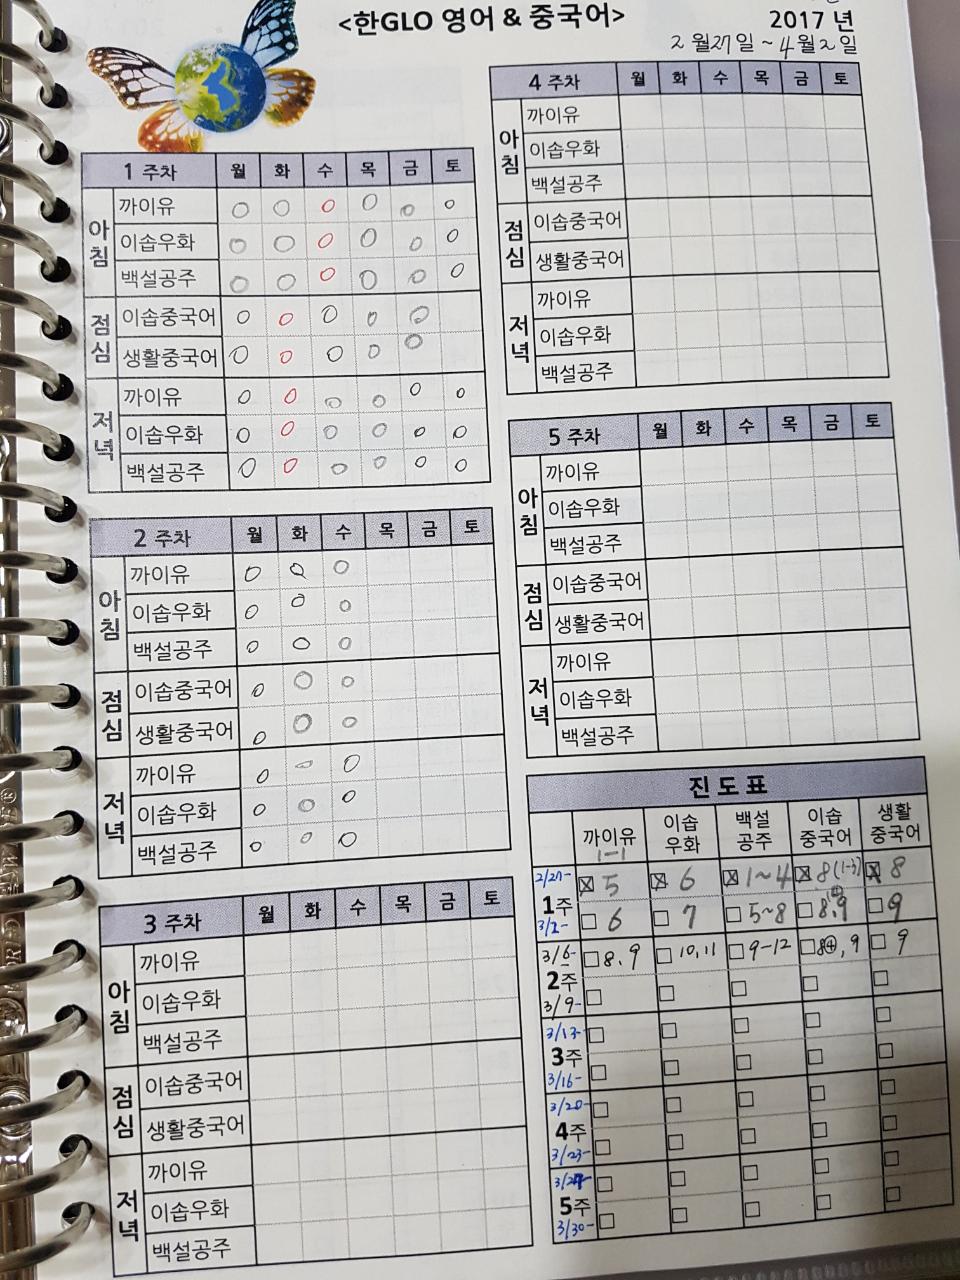 <한GLO 영어 & 중국어>
2017 년
2 월 27 일 ~ 4 월 2 일
1 주차 월 화 수 목 금 토
아침
까이유
이솝우화
백설공주
점심
이솝중국어
생활중국어
저녁
까이유
이솝우화
백설공주
2 주차 월 화 수 목 금 토
아침
까이유
이솝우화
백설공주
점심
이솝중국어
생활중국어
저녁
까이유
이솝우화
백설공주
3 주차 월 화 수 목 금 토
아침
까이유
이솝우화
백설공주
점심
이솝중국어
생활중국어
저녁
까이유
이솝우화
백설공주
4 주차 월 화 수 목 금 토
아침
까이유
이솝우화
백설공주
점심
이솝중국어
생활중국어
저녁
까이유
이솝우화
백설공주
5 주차 월 화 수 목 금 토
아침
까이유
이솝우화
백설공주
점심
이솝중국어
생활중국어
저녁
까이유
이솝우화
백설공주
진 도 표
까이유 이솝우화 백설공주 이솝중국어 생활중국어
1-1
2/27- 5 6 1~4 8(1-3) 8
1주
3/2- 6 7 5~8 8.9 9
3/6- 8.9 10,11 9-12 8④,9 9
2주
3/9-
3/13-
3주
3/16-
3/20-
4주
3/23-
3/27-
5주
3/30-